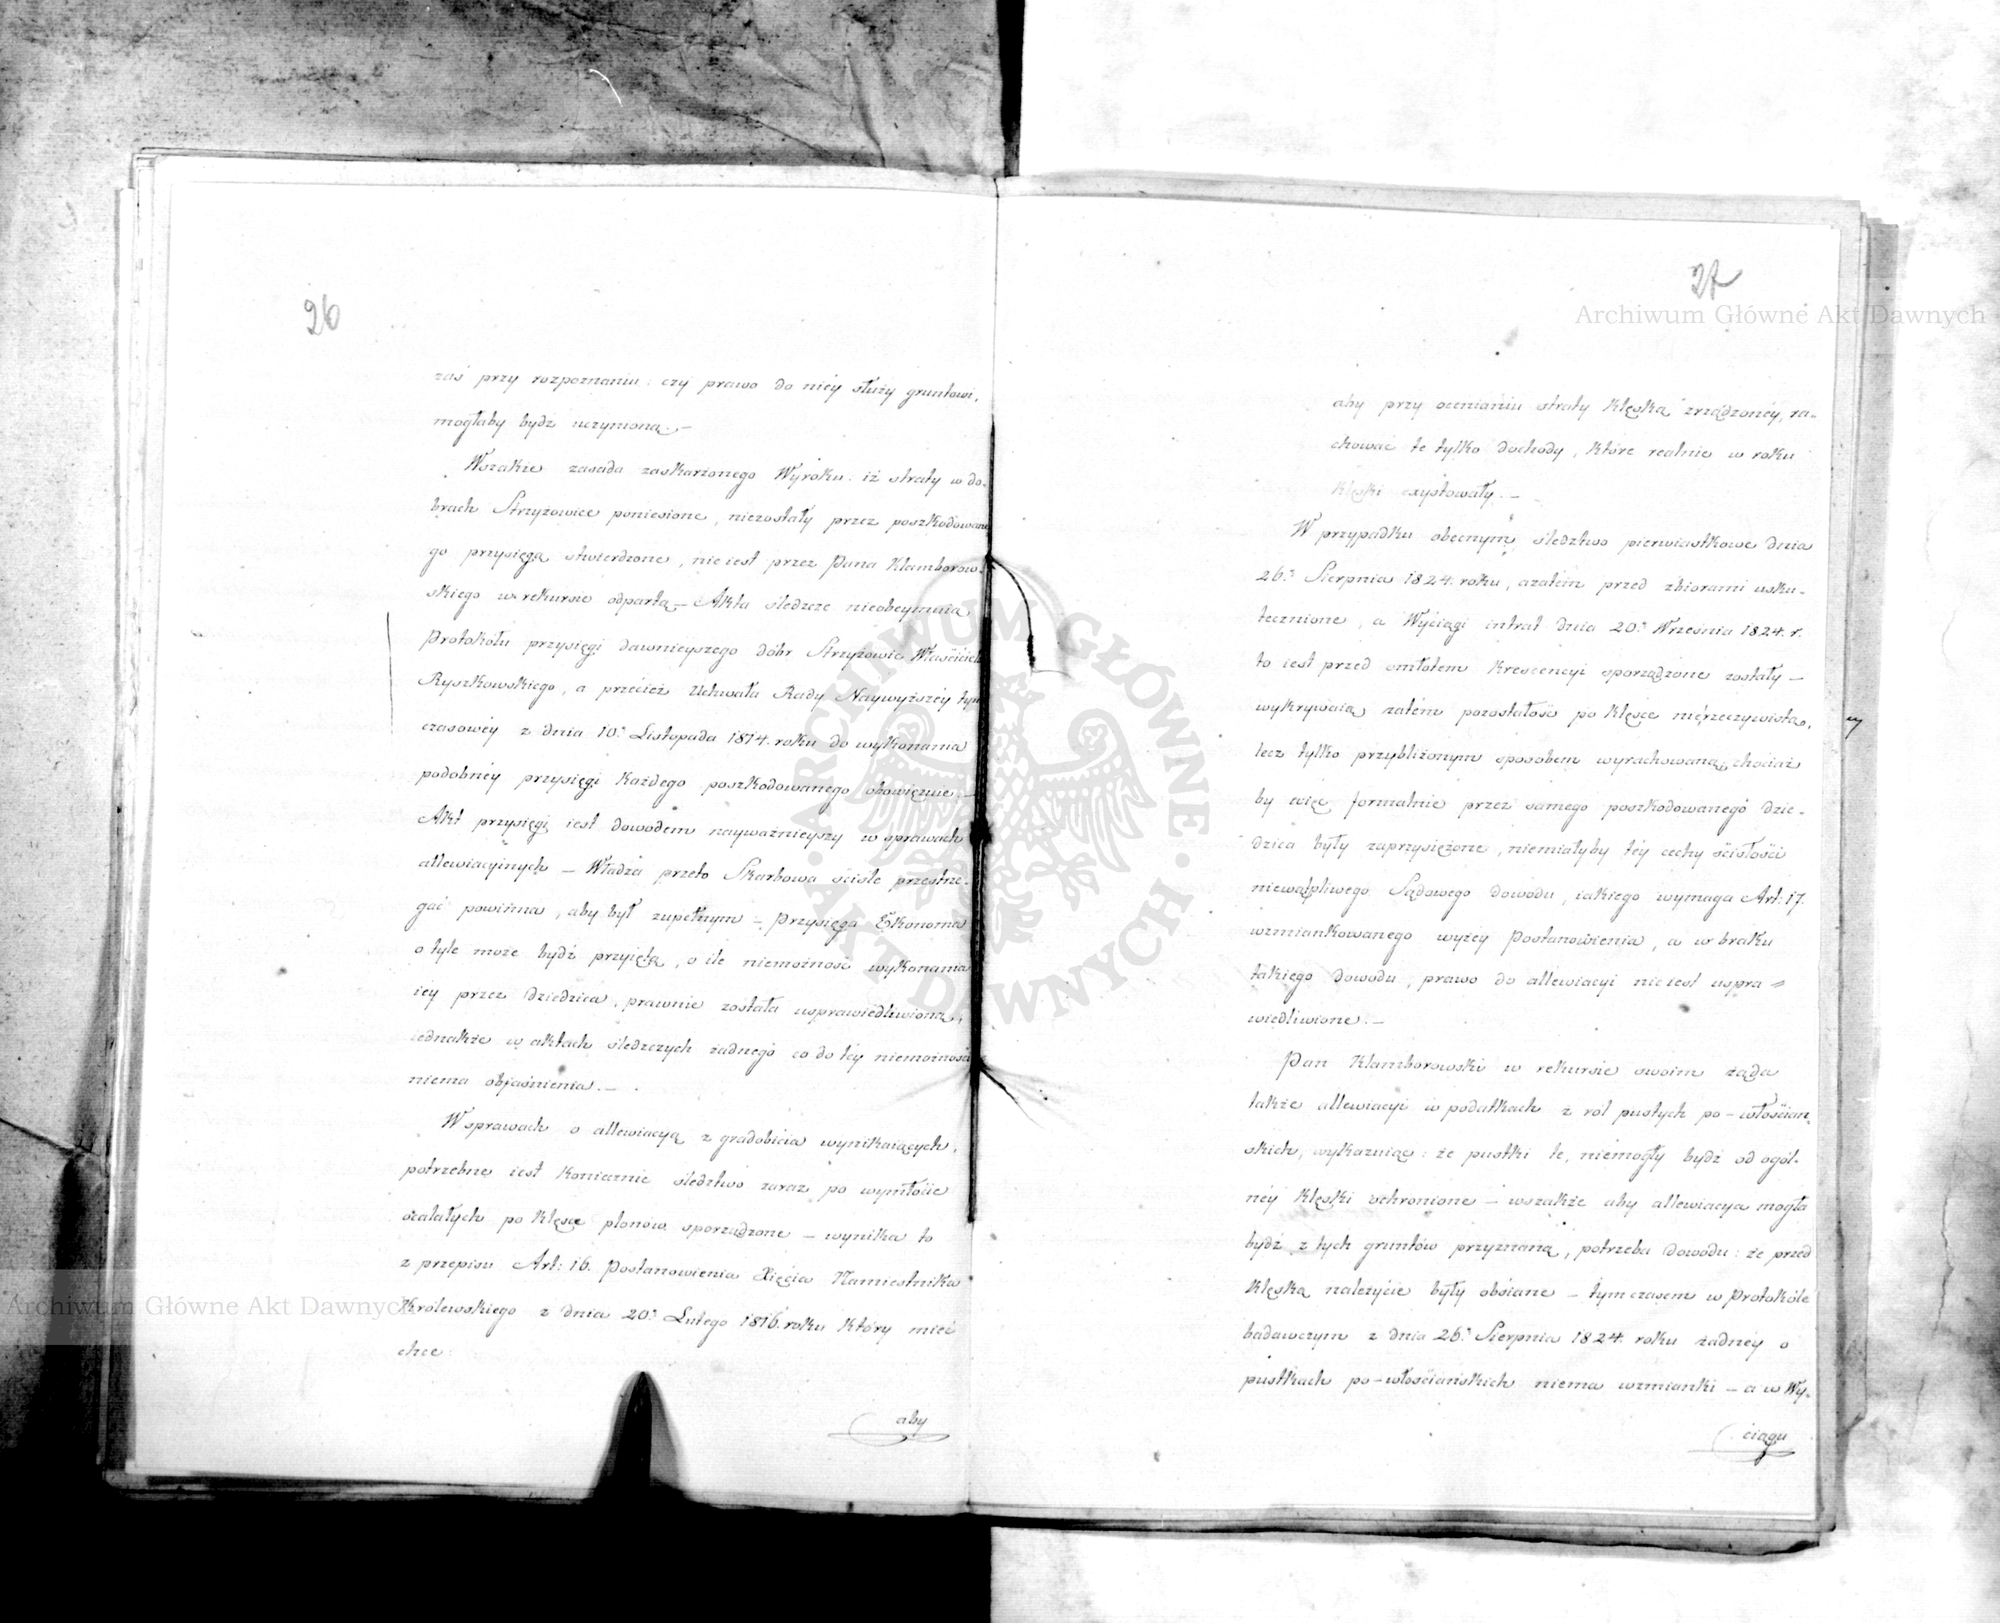 26
zaś przy rozpoznaniu: czy prawo do niéy służy gruntowi,
mogłaby bydź uczynioną. —
Wszakże zasada zaskarżonego Wyroku: iż straty w do-
brach Strzyżowice poniesione, niezostały przez poszkodowane
go przysięgą stwierdzone, nie iest przez Pana Klamborow-
skiego w rekursie odpartą — Akta śledcze nieobeymuią
Protokółu przysięgi dawnieyszego dóbr Strzyżowic Właściciela
Ryszkowskiego, a przecież Uchwała Rady Naywyższéy tym
czasowéy z dnia 10. Listopada 1814. roku do wykonania
podobnéy przysięgi każdego poszkodowanego obowięzuie. —
Akt przysięgi iest dowodem nayważnieyszy w sprawach
allewiacyinych — Władza przeto Skarbowa ściśle przestrze-
gać powinna, aby był zupełnym — Przysięga Ekonoma
o tyle może bydź przyiętą, o ile niemożność wykonania
iey przez Dziedzica, prawnie została usprawiedliwioną,
iednakże w aktach śledczych żadnego co do téy niemożności
niema obiaśnienia. —
W sprawach o allewiacyą z gradobicia wynikaiących,
potrzebne iest koniecznie śledztwo zaraz po wymłócie
ocalałych po klęsce plonów sporządzone — wynika to
z przepisu Art: 16. Postanowienia Xięcia Namiestnika
Królewskiego z dnia 20. Lutego 1816. roku który mieć
chce:
aby
27
aby przy ocenianiu straty klęską zrządzonéy, ra-
chować te tylko dochody, które realnie w roku
klęski exystowały. —
W przypadku obecnym śledztwo pierwiastkowe dnia
26. Sierpnia 1824. roku, azatém przed zbiorami usku-
tecznione, a Wyciągi intrat dnia 20. Września 1824. r.
to iest przed omłotem krescencyi sporządzone zostały —
wykrywaią zatém pozostałość po klęsce nierzeczywistą,
lecz tylko przybliżonym sposobem wyrachowaną, chociaż
by więc formalnie przez samego poszkodowanego dzie-
dzica były zaprzysiężone, niemiałyby téy cechy ścisłości
niewątpliwego Sądowego dowodu, iakiego wymaga Art: 17.
wzmiankowanego wyżey Postanowienia, a w braku
takiego dowodu, prawo do allewiacyi nie iest uspra =
wiedliwione. —
Pan Klamborowski w rekursie swoim żąda
także allewiacyi w podatkach z ról pustych po-włościań
skich, wykazuiąc: że pustki te, niemogły bydź od ogól-
néy klęski ochronione — wszakże aby allewiacya mogła
bydź z tych gruntów przyznaną, potrzeba dowodu: że przed
klęską należycie były obsiane — tymczasem w Protokóle
badawczym z dnia 26. Sierpnia 1824. roku żadnéy o
pustkach po-włościańskich niema wzmianki — a w Wy-
ciągu
Archiwum Główne Akt Dawnych
Archiwum Główne Akt Dawnych
ARCHIWUM GŁÓWNE · AKT DAWNYCH ·